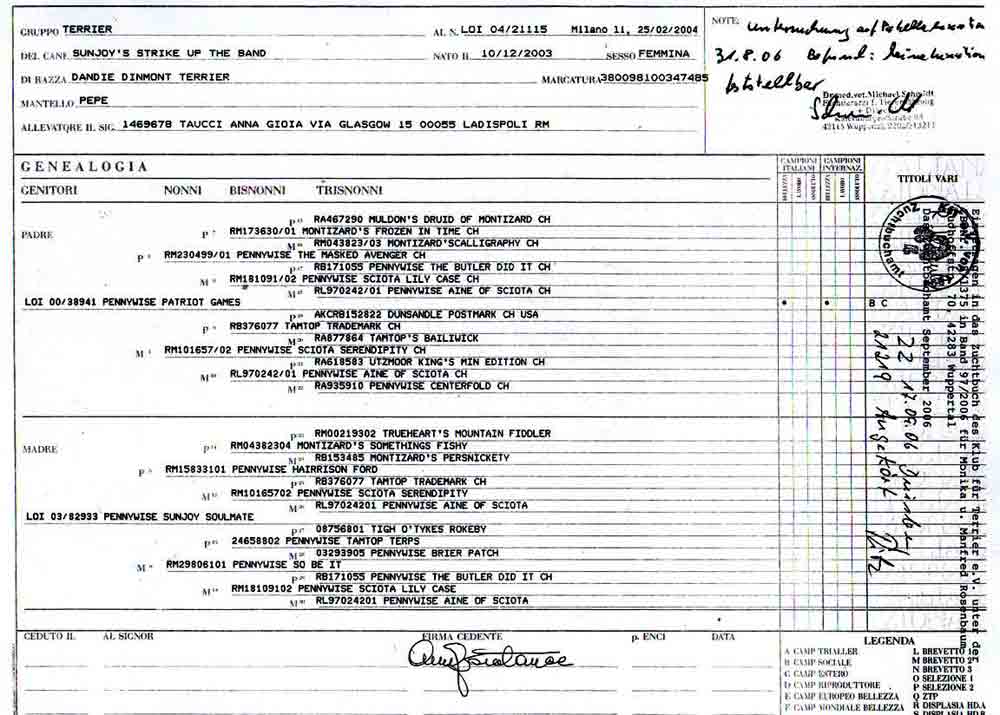 GRUPPO TERRIER AL N. LOI 04/21115 Milano 11, 25/02/2004
DEL CANE SUNJOY'S STRIKE UP THE BAND NATO IL 10/12/2003 SESSO FEMMINA
DI RAZZA DANDIE DINMONT TERRIER MARCATURA 380098100347485
MANTELLO PEPE
ALLEVATORE IL SIG. 1469678 TAUCCI ANNA GIOIA VIA GLASGOW 15 00055 LADISPOLI RM
NOTE:
Untersuchung auf Patellaluxation
31.8.06 Befund: keine Luxation
feststellbar
Dr. med. vet. Michael Schmidt
GENEALOGIA
GENITORI NONNI BISNONNI TRISNONNI
CAMPIONI ITALIANI CAMPIONI INTERNAZ.
BELLEZZA LAVORO BELLEZZA LAVORO
TITOLI VARI
PADRE
P RA467290 MULDON'S DRUID OF MONTIZARD CH
P RM173630/01 MONTIZARD'S FROZEN IN TIME CH
M RM043823/03 MONTIZARD'SCALLIGRAPHY CH
P RM230499/01 PENNYWISE THE MASKED AVENGER CH
P RB171055 PENNYWISE THE BUTLER DID IT CH
M RM181091/02 PENNYWISE SCIOTA LILY CASE CH
M RL970242/01 PENNYWISE AINE OF SCIOTA CH
LOI 00/38941 PENNYWISE PATRIOT GAMES B C
P AKCRB152822 DUNSANDLE POSTMARK CH USA
P RB376077 TAMTOP TRADEMARK CH
M RA877864 TAMTOP'S BAILIWICK
M RM101657/02 PENNYWISE SCIOTA SERENDIPITY CH
P RA618583 UTZMOOR KING'S MIN EDITION CH
M RL970242/01 PENNYWISE AINE OF SCIOTA CH
M RA935910 PENNYWISE CENTERFOLD CH
MADRE
P RM00219302 TRUEHEART'S MOUNTAIN FIDDLER
P RM04382304 MONTIZARD'S SOMETHINGS FISHY
M RB153485 MONTIZARD'S PERSNICKETY
P RM15833101 PENNYWISE HAIRRISON FORD
P RB376077 TAMTOP TRADEMARK CH
M RM10165702 PENNYWISE SCIOTA SERENDIPITY
M RL97024201 PENNYWISE AINE OF SCIOTA
LOI 03/82933 PENNYWISE SUNJOY SOULMATE
P 08756801 TIGH O'TYKES ROKEBY
P 24658802 PENNYWISE TAMTOP TERPS
M 03293905 PENNYWISE BRIER PATCH
M RM29806101 PENNYWISE SO BE IT
P RB171055 PENNYWISE THE BUTLER DID IT CH
M RM18109102 PENNYWISE SCIOTA LILY CASE
M RL97024201 PENNYWISE AINE OF SCIOTA
Eingetragen in das Zuchtbuch des Klub für Terrier e.V. unter der
1375 in Band 97/2006 für Monika u. Manfred Rosenbaum
70, 42283 Wuppertal
September 2006
Zuchtbuchamt
22 17.09.06
21219 Angekört
CEDUTO IL AL SIGNOR FIRMA CEDENTE p. ENCI DATA
LEGENDA
A CAMP TRIALLER L BREVETTO 1
B CAMP SOCIALE M BREVETTO 2
C CAMP ESTERO N BREVETTO 3
D CAMP RIPRODUTTORE O SELEZIONE 1
E CAMP EUROPEO BELLEZZA P SELEZIONE 2
F CAMP MONDIALE BELLEZZA Q ZTP
R DISPLASIA HD.A
S DISPLASIA HD.B